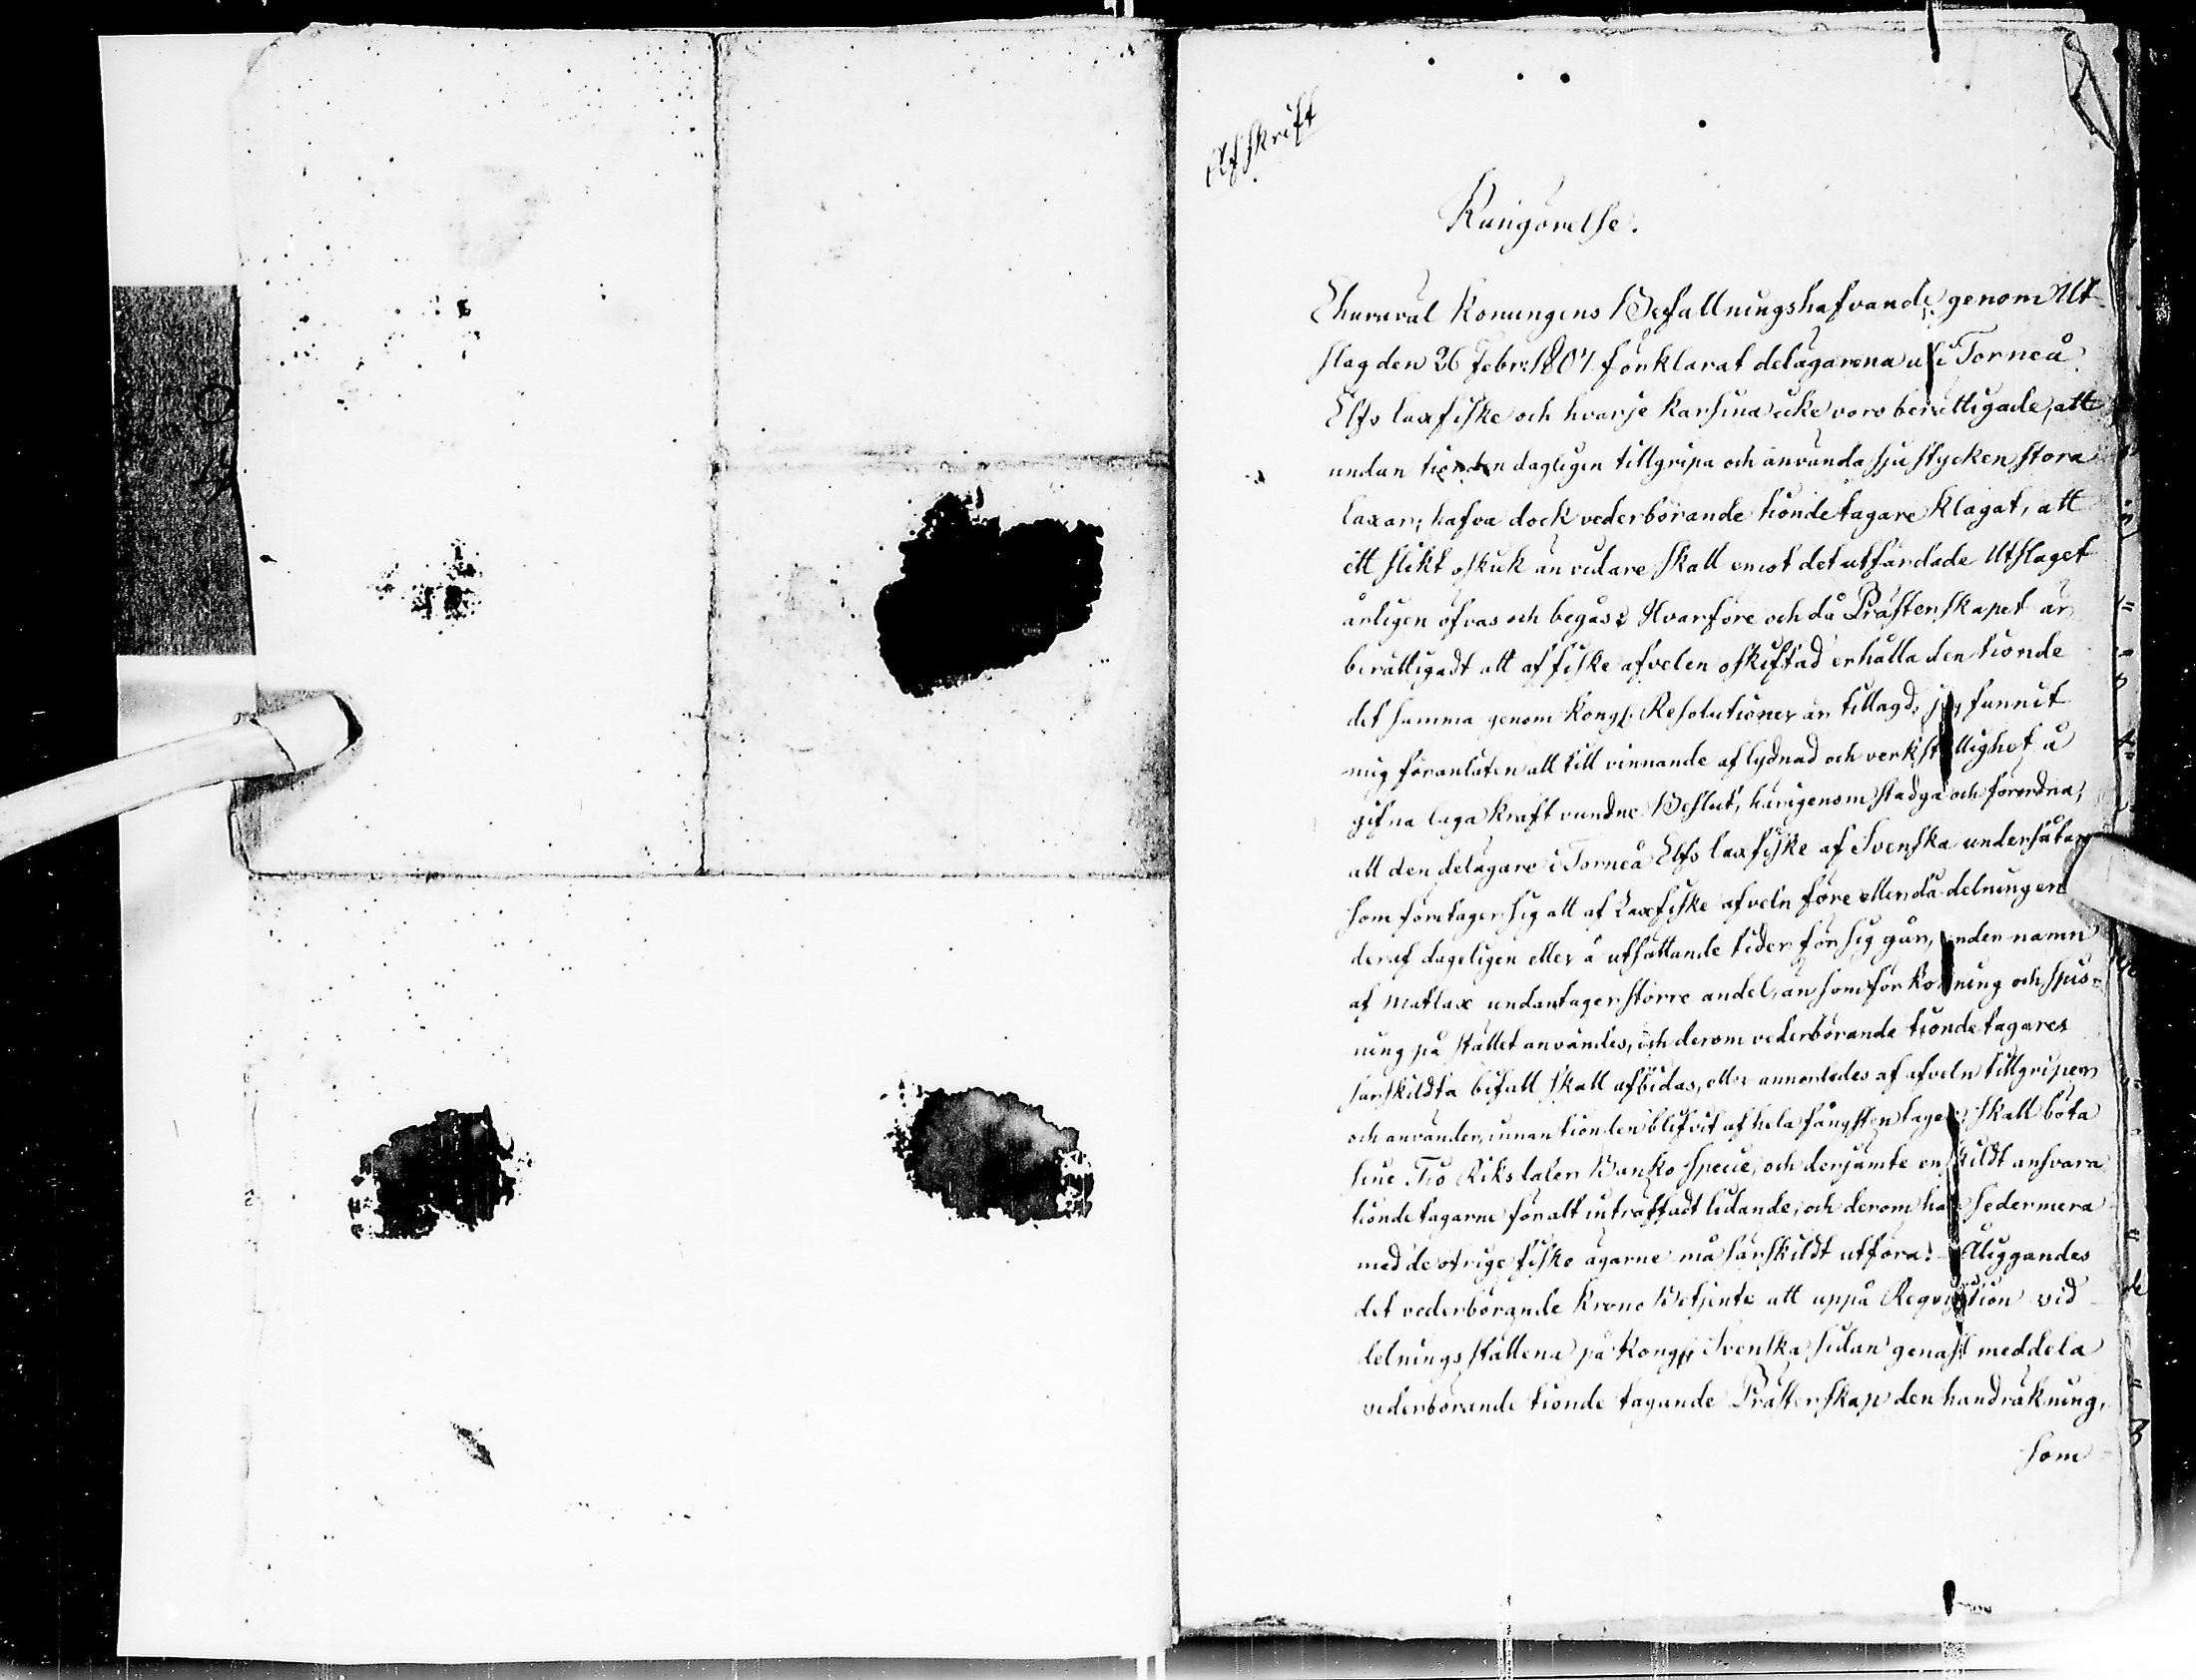 Afskrift
Kungörelse.
Ehuruväl Konungens Befallningshafvande genom Ut-
slag den 26 Febr: 1807 förklarat delägarena uti Torneå
Elfs laxfiske och hvarje karsina icke voro berättigade, att
undan tionden dagligen tillgripa och använda sju stycken stora
laxar; hafva dock vederbörande tiondetagare klagat, att
ett slikt oskick än vidare skall emot det utfärdade Utslaget
årligen öfvas och begås; Hvarföre och då Prästerskapet är
berättigadt att af fiske afvelen oskiftad erhålla den tionde
det samma genom Kongl. Resolutioner är tillagd; jag funnit
mig föranlåten att till vinnande af lydnad och verkställighet å
gifna laga kraft vundne Beslut, härigenom stadga och förordna,
att den delägare i Torneå Elfs laxfiske af Svenska undersåtare
som företager sig att af Laxfiske afveln före eller då delningen
deraf dageligen eller å utsättande tider för sig går, under namn
af matlax undantager större andel, än som för kokning och spis-
ning på stället användes, och derom vederbörande tiondetagares
särskildta bifall skall afbidas, eller annorledes af afveln tillgriper
och använder, innan tionden blifvit af hela fångsten tagen; skall böta
sine Tio Riksdaler Banko Specie, och derjämte enskildt ansvara
tiondetagarne för alt inträffadt lidande, och derom han sedermera
med de öfrige fiske ägarne må särskildt utföra: Åliggandes
det vederbörande Krono Betjente att uppå Requisition vid
delningsställena på Kongl. Svenska sidan genast meddela
vederbörande tionde tagande Prästerskap den handräkning,
som